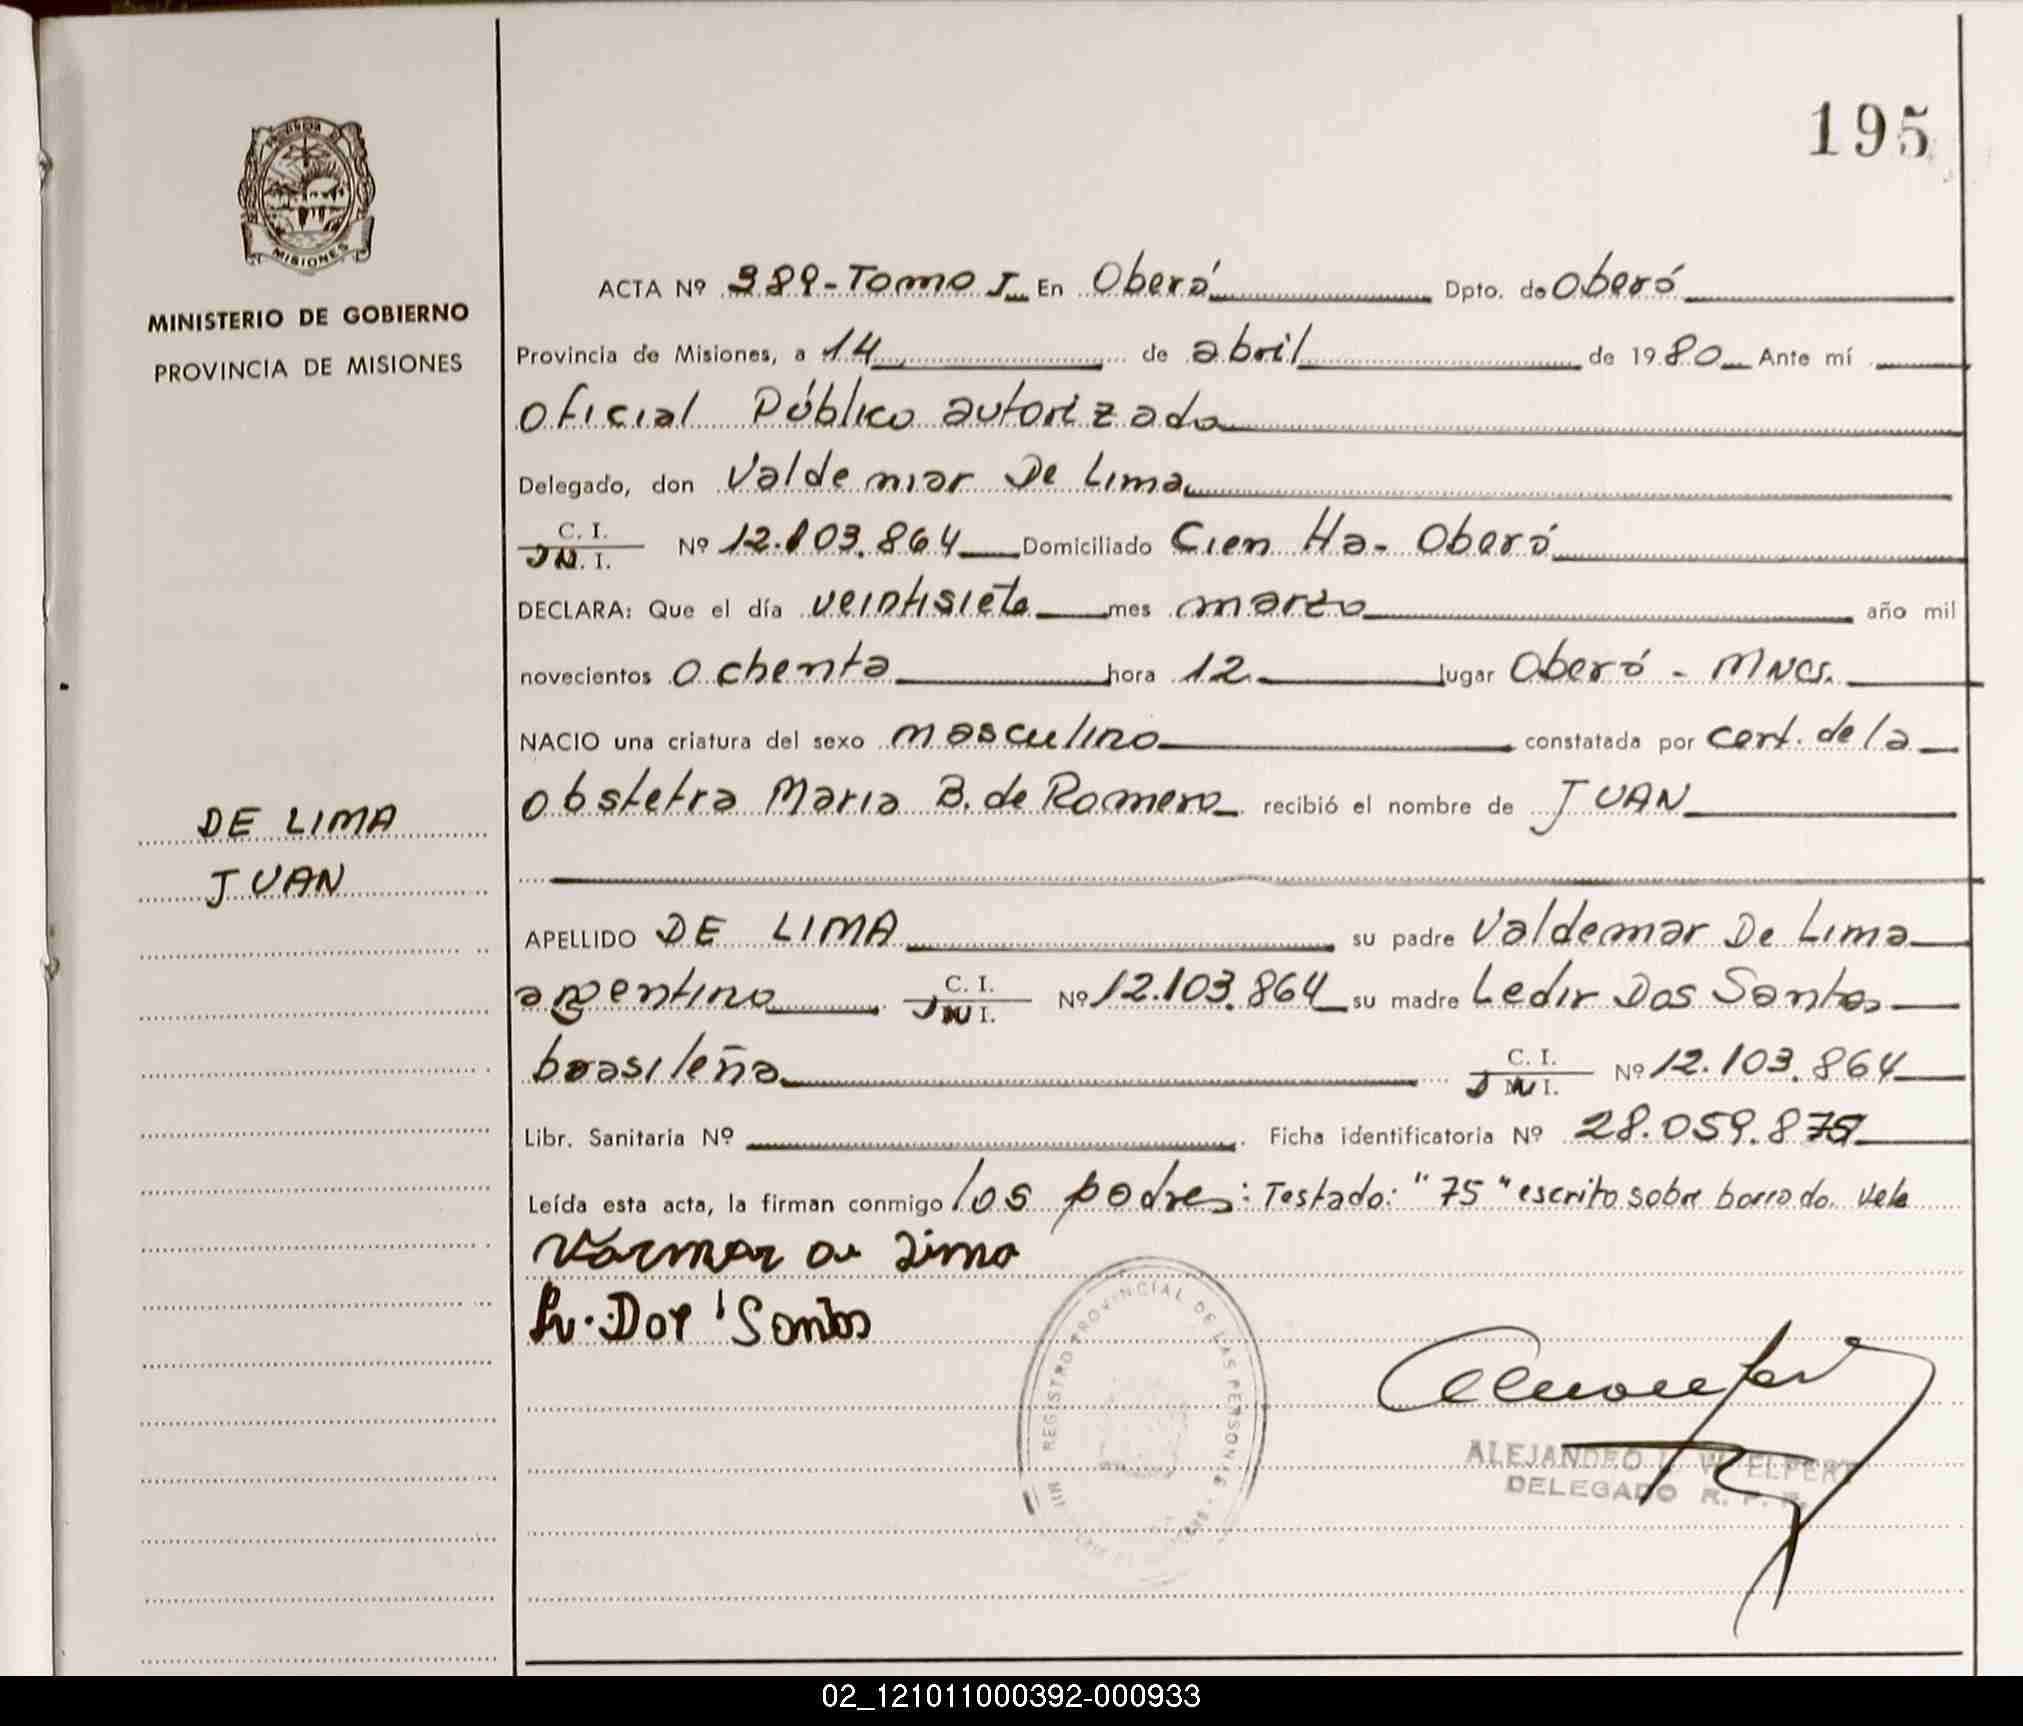 195
MISIONES
MINISTERIO DE GOBIERNO
PROVINCIA DE MISIONES
ACTA Nº 389-Tomo I En Oberá Dpto. de Oberá
Provincia de Misiones, a 14 de abril de 1980 Ante mí
Oficial Público autorizado
Delegado, don Valdemar De Lima
C. I.
D N. I. Nº 12.103.864 Domiciliado Cien Ha- Oberá
DECLARA: Que el día veintisiete mes marzo año mil
novecientos ochenta hora 12 lugar Oberá - Mnes.
NACIO una criatura del sexo masculino constatada por cert. de la
obstetra Maria B. de Romero recibió el nombre de JUAN
DE LIMA
JUAN
APELLIDO DE LIMA su padre Valdemar De Lima
argentino C. I.
D N I. Nº 12.103.864 su madre Ledir Dos Santos
brasileña C. I.
D N I. Nº 12.103.864
Libr. Sanitaria Nº Ficha identificatoria Nº 28.059.875
Leída esta acta, la firman conmigo los padres: Testado: "75" escrito sobre borrado. vale
de Lima
Dos Santos
REGISTRO PROVINCIAL DE LAS PERSONAS
ALEJANDRO
DELEGADO R. P. P.
02_121011000392-000933